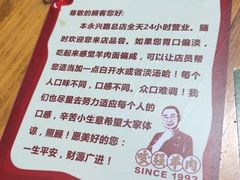 尊敬的顾客您好:
本永兴路总店全天24小时营业。随
时欢迎您来店品尝。如果您胃口偏淡,
吃起来感觉羊肉面偏咸,可以让店员帮
您适当加一点白开水或者淡汤哈!每个
人口味不同,口感不同。众口难调!我
们也尽量去努力适应每个人的
口感,辛苦小生意希望大家体
谅,照顾!愿美好的您:
一生平安,财源广进!
羊肉
SINCE 1993